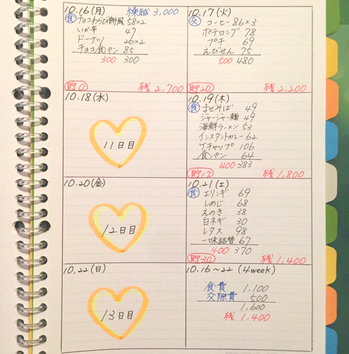 10.16(月) 繰越 3,000
食 チョコわらび餅風 58×2
47
ドーナツ 26×2
チョコ食パン 85
300 300
貯0 残 2,700
10.17(火)
交 コーヒー 86×3
ポテロング 78
プチ 69
えびせん 75
500 480
貯20 残 2,200
10.18(水)
11日目
10.19(木)
食 まぜそば 49
ジャージャー麺 49
海鮮ラーメン 53
インスタントカレー 62
ケチャップ 106
食パン 64
400 383
貯17 残 1,800
10.20(金)
12日目
10.21(土)
食 エリンギ 69
しめじ 68
えのき 38
白ネギ 30
レタス 98
67
400 370
貯30 残 1,400
10.22(日)
13日目
10.16〜22 (4week)
食費 1,100
交際費 500
1,600
残 1,400